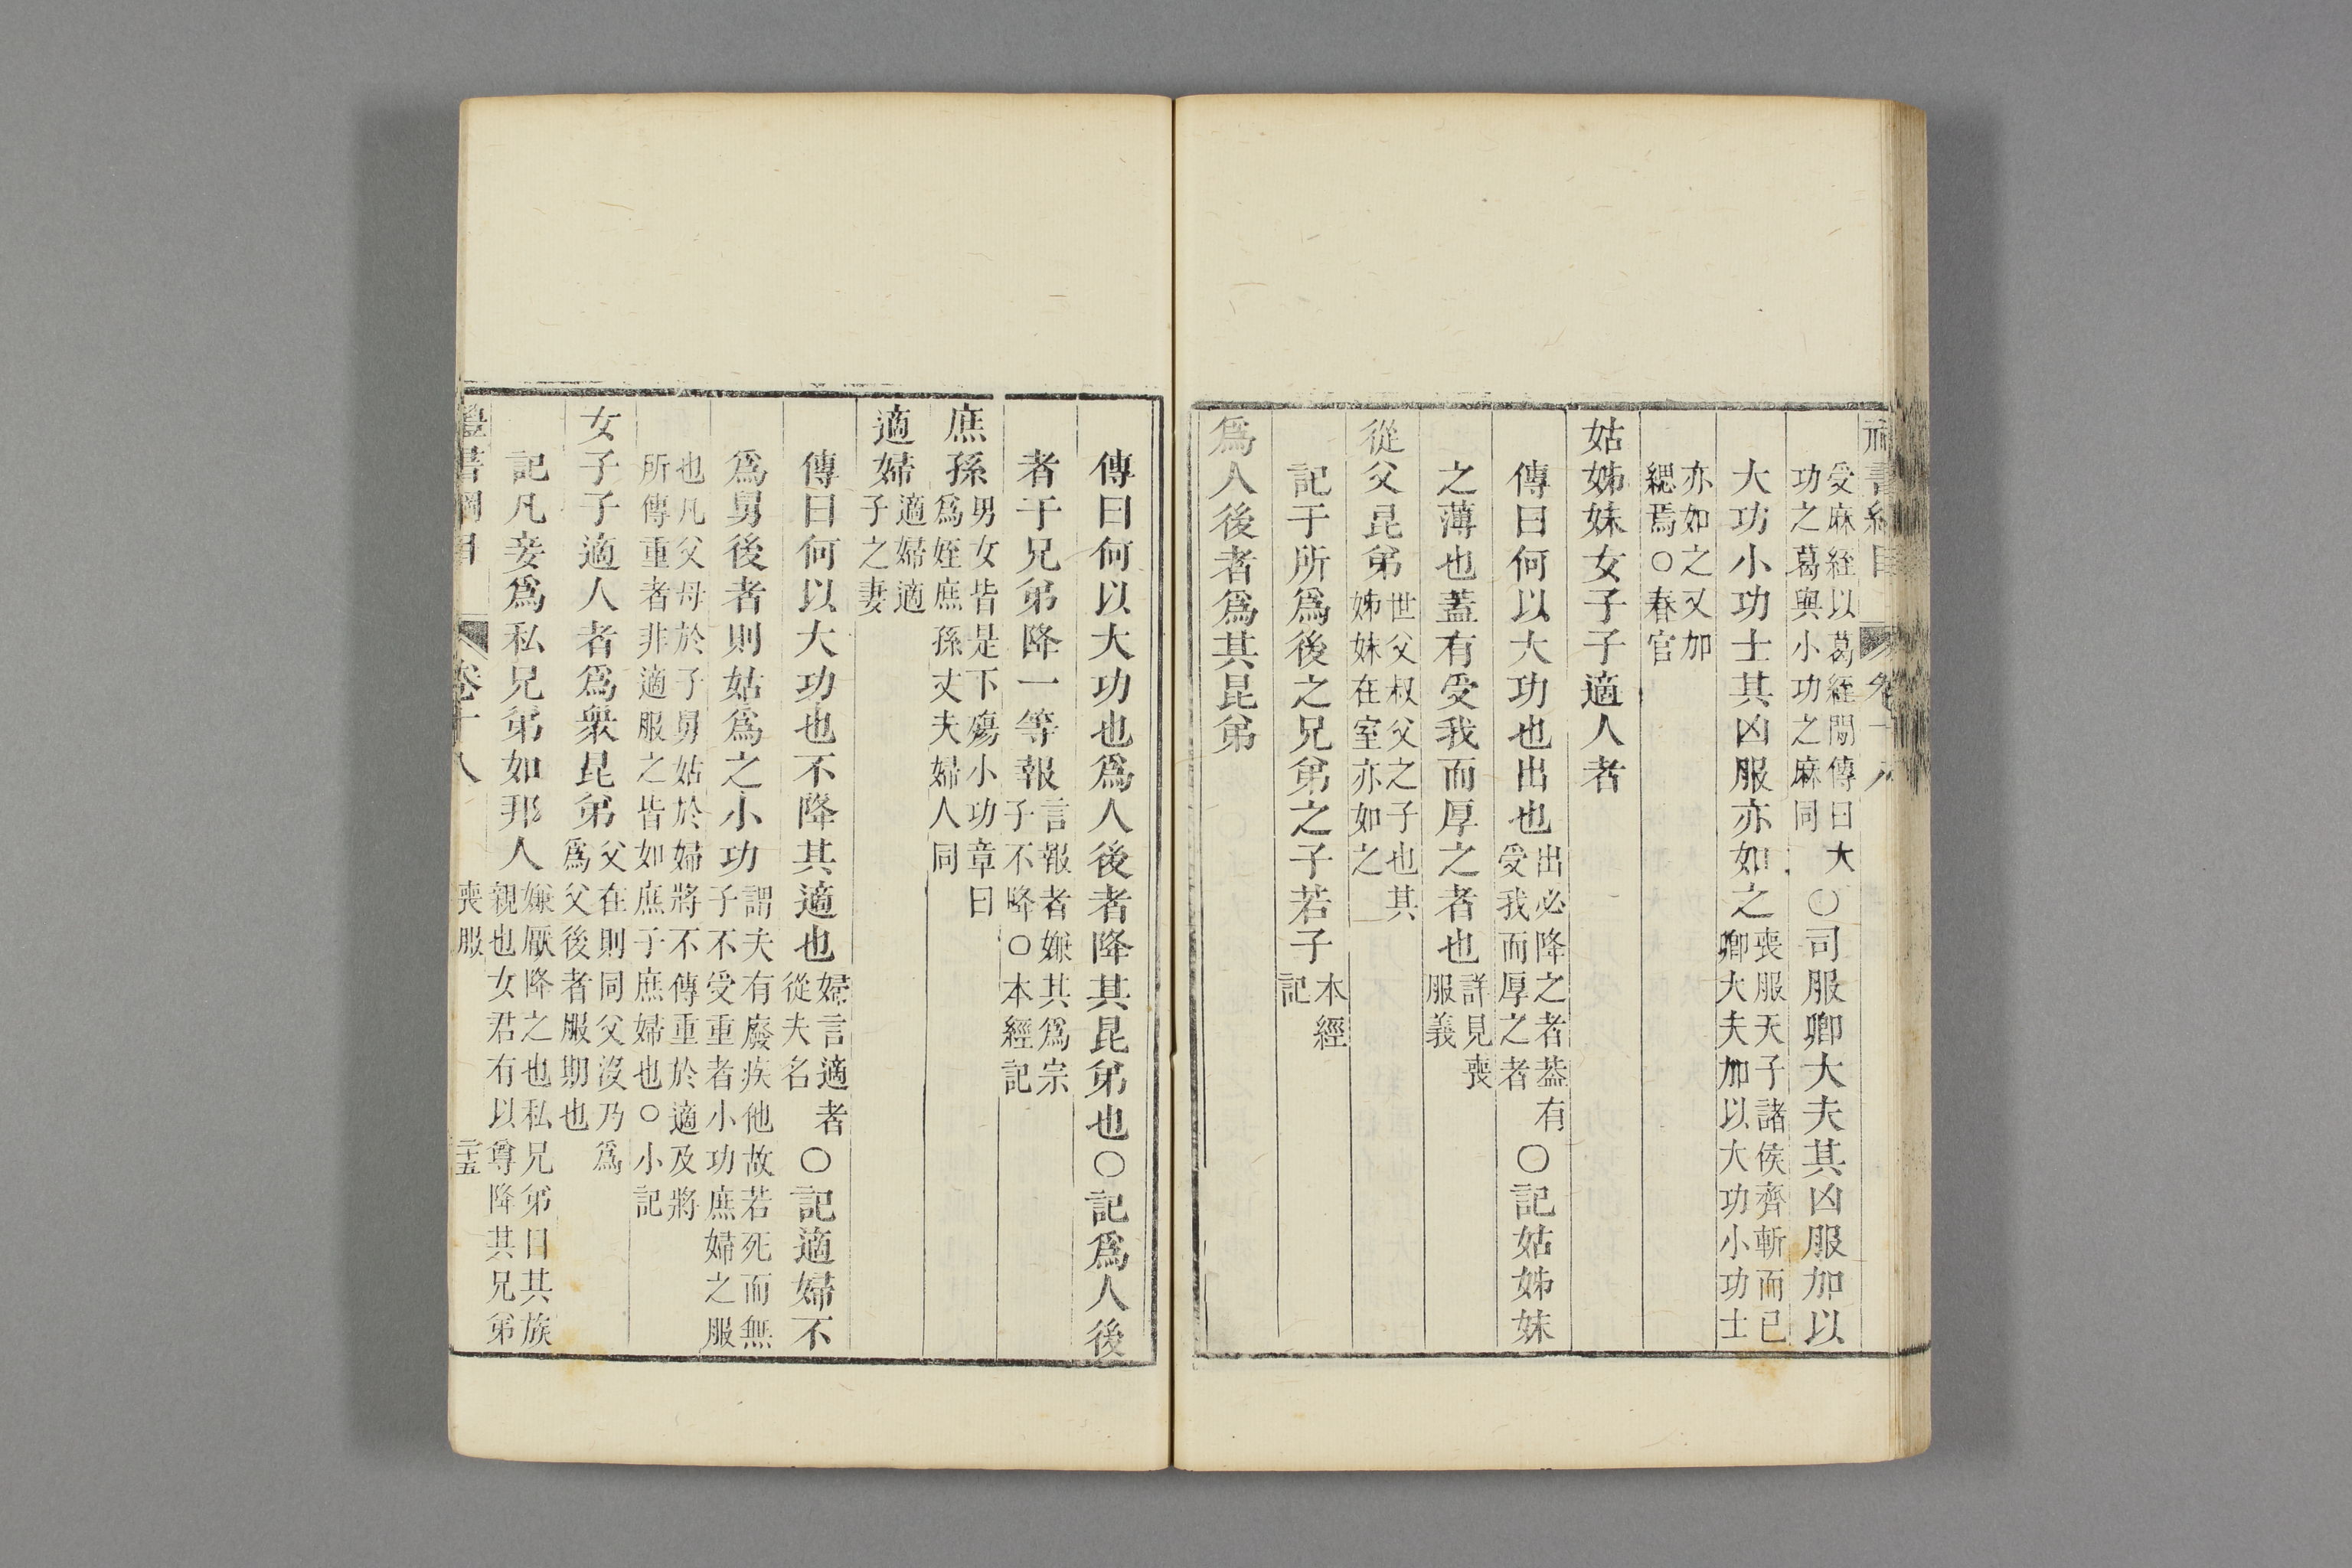 受麻絰以葛絰閒傳曰大
功之葛與小功之麻同
○司服卿大夫其凶服加以
大功小功士其凶服亦如之
喪服天子諸侯齊斬而已
卿大夫加以大功小功士
亦如之又加
緦焉○春官
姑姊妹女子子適人者
傳曰何以大功也出也
出必降之者葢有
受我而厚之者
○記姑姊妹
之薄也蓋有受我而厚之者也
詳見喪
服義
從父昆弟
世父叔父之子也其
姊妹在室亦如之
記于所爲後之兄弟之子若子
本經
記
爲人後者爲其昆弟
傳曰何以大功也爲人後者降其昆弟也○記爲人後
者于兄弟降一等報
言報者嫌其爲宗
子不降○本經記
庶孫
男女皆是下殤小功章曰
爲姪庶孫丈夫婦人同
適婦
適婦適
子之妻
傳曰何以大功也不降其適也
婦言適者
從夫名
○記適婦不
爲舅後者則姑爲之小功
謂夫有廢疾他故若死而無
子不受重者小功庶婦之服
也凡父母於子舅姑於婦將不傳重於適及將
所傳重者非適服之皆如庶子庶婦也○小記
女子子適人者爲衆昆弟
父在則同父沒乃爲
爲父後者服期也
記凡妾爲私兄弟如邦人
嫌厭降之也私兄弟目其族
親也女君有以尊降其兄弟
禮書綱目 卷十八 喪服 二十五